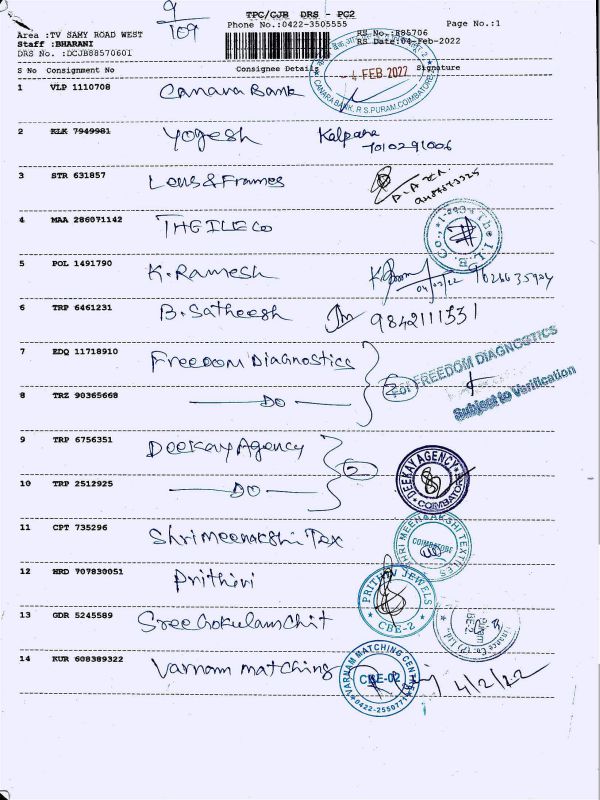 9
109
TPC/CJB DRS - PC2
Phone No.:0422-3505555
Page No.:1
Area :TV SAMY ROAD WEST
RS No.:R85706
Staff :BHARANI
RS Date:04-Feb-2022
DRS No. :DCJB88570601
S No Consignment No Consignee Details Signature
1 VLP 1110708 Canara Bank
- 4 FEB 2022
CANARA BANK, R S PURAM, COIMBATORE
2 KLK 7949981 Yogesh Kalpana
7010291006
3 STR 631857 Lens & Frames
4 MAA 286071142 THEILECO
5 POL 1491790 K. Ramesh 04/02/22
6 TRP 6461231 B. Satheesh 9842111531
7 EDQ 11718910 Freedom Diagnostics
For FREEDOM DIAGNOSTICS
Subject to Verification
8 TRZ 90365668 DO
9 TRP 6756351 Deekay Agency
DEEKAY AGENCY
COIMBATORE
10 TRP 2512925 DO
11 CPT 735296 Shri meenakshi Tex
SHRI MEENAAKSHI TEXTILES
COIMBATORE
12 HRD 707830051 Prithivi
PRITHIVI JEWELS
CBE-2
13 GDR 5245589 Sree Gokulam Chit
14 KUR 608389322 Varnam matching
VARNAM MATCHING CENTRE
CBE-02
4/2/22